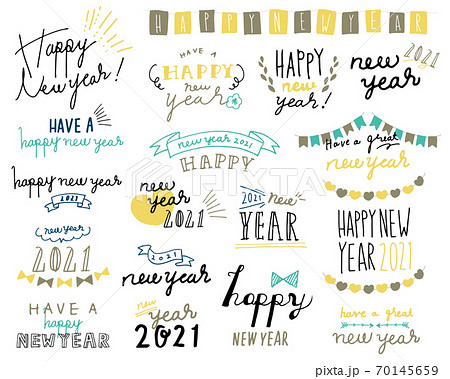 Happy
New year!
HAPPYNEWYEAR
HAVE A
HAPPY
new
year
HAPPY
new
year!
new
year
2021
HAVE A
happy new year
new year 2021
HAPPY
Have a great
new year
happy new year
2021
new
year
2021
2021
new
YEAR
HAPPY NEW
YEAR 2021
new year
2021
2021
new year
happy
NEW YEAR
HAVE A
happy
NEW YEAR
new
year
2021
have a great
new year
PIXTA
pixta.jp - 70145659